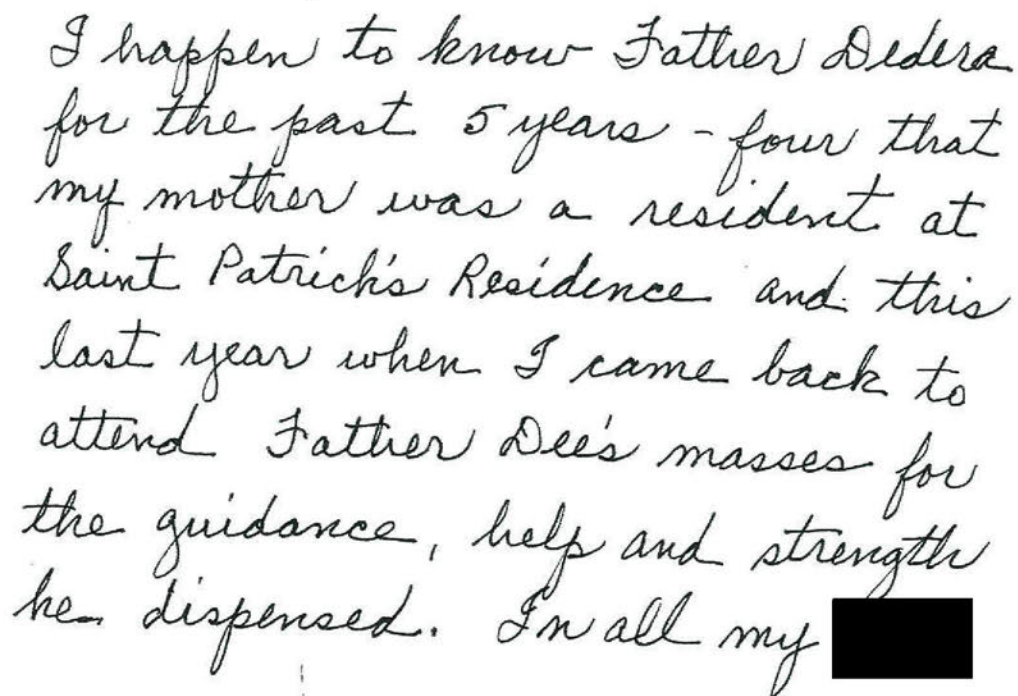 I happen to know Father Dedera
for the past 5 years - four that
my mother was a resident at
Saint Patrick's Residence and this
last year when I came back to
attend Father Dee's masses for
the guidance, help and strength
he dispensed. In all my